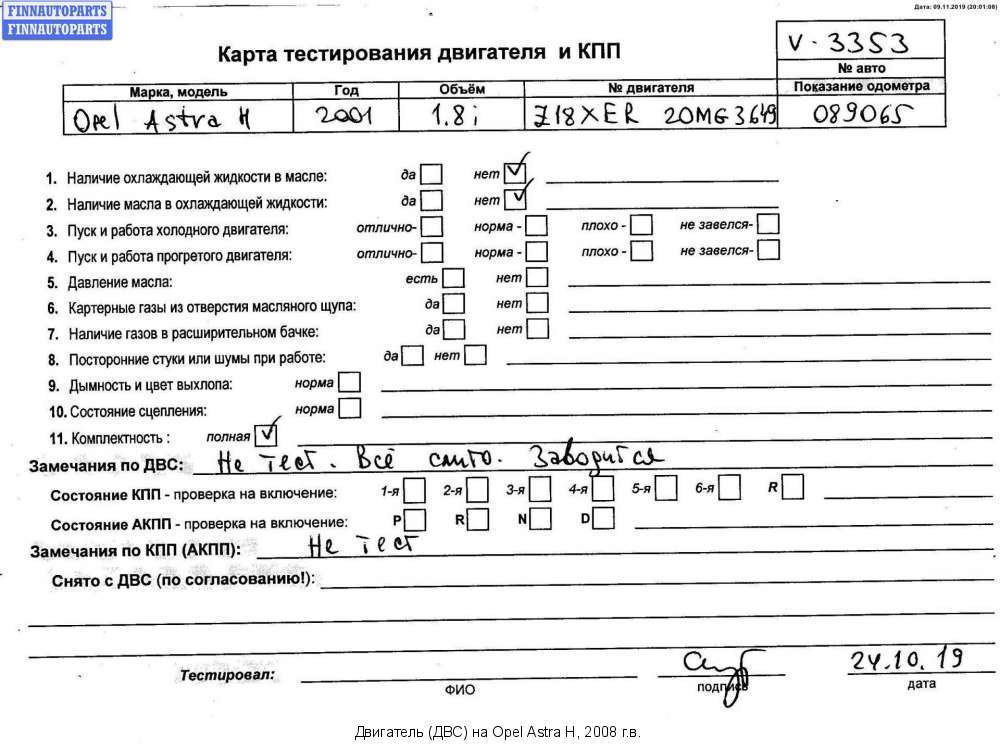 Дата: 09.11.2019 (20:01:06)
FINNAUTOPARTS
FINNAUTOPARTS
Карта тестирования двигателя и КПП
V-3353
№ авто
Марка, модель Год Объём № двигателя Показание одометра
Opel Astra H 2001 1.8i Z18XER 20MG3649 089065
1. Наличие охлаждающей жидкости в масле: да нет
2. Наличие масла в охлаждающей жидкости: да нет
3. Пуск и работа холодного двигателя: отлично- норма - плохо - не завелся-
4. Пуск и работа прогретого двигателя: отлично- норма - плохо - не завелся-
5. Давление масла: есть нет
6. Картерные газы из отверстия масляного щупа: да нет
7. Наличие газов в расширительном бачке: да нет
8. Посторонние стуки или шумы при работе: да нет
9. Дымность и цвет выхлопа: норма
10. Состояние сцепления: норма
11. Комплектность : полная
Замечания по ДВС: Не тест. Всё слито. Заводится
Состояние КПП - проверка на включение: 1-я 2-я 3-я 4-я 5-я 6-я R
Состояние АКПП - проверка на включение: P R N D
Замечания по КПП (АКПП): Не тест
Снято с ДВС (по согласованию!):
Тестировал:
ФИО подпись дата
24.10.19
Двигатель (ДВС) на Opel Astra H, 2008 г.в.